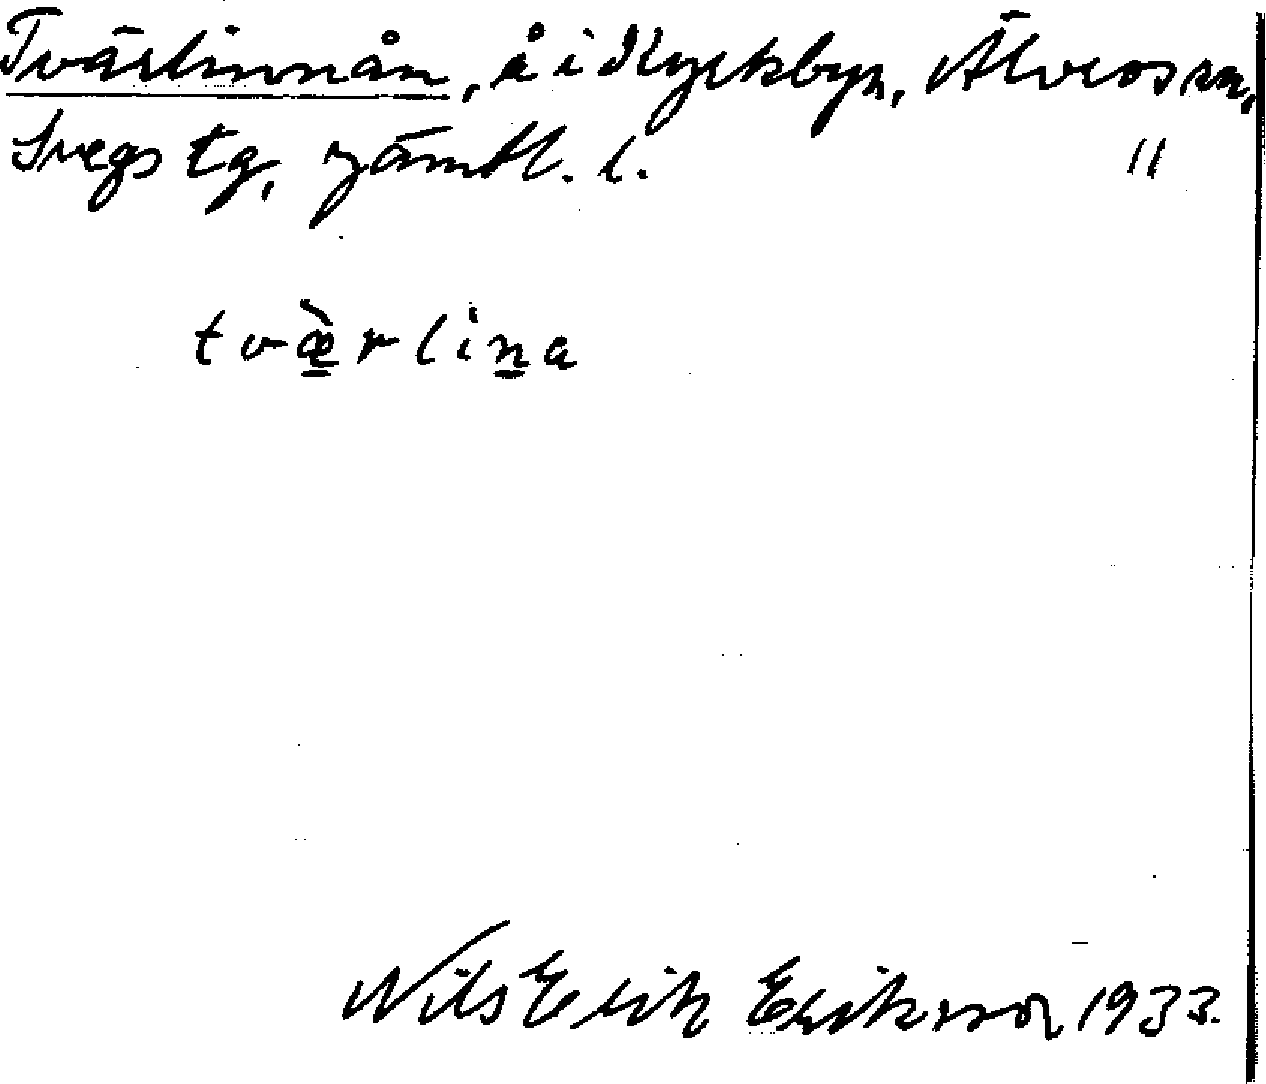 Tvärlinnån, å i Kyrkbyn, Älvros sn,
Svegs tg, Jämtl. l. "
tvæ̀rlina
Nils Erik Eriksson 1933.